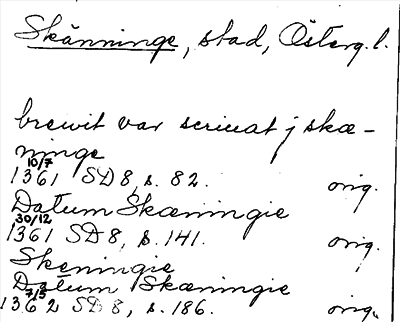 Skänninge, stad, Österg. l.
brewit var scriuat j skæ-
ninge
10/7
1361 SD 8, s. 82. orig.
Datum Skæningie
30/12
1361 SD 8, s. 141. orig.
Skeningie
Datum Skæningie
7/3
1362 SD 8, s. 186. orig.